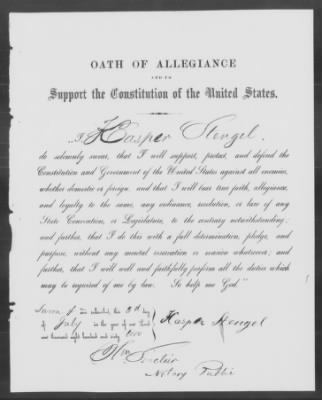 OATH OF ALLEGIANCE
AND TO
Support the Constitution of the United States.
"I, Kasper Stengel.
do solemnly swear, that I will support, protect, and defend the
Constitution and Government of the United States against all enemies,
whether domestic or foreign. and that I will bear true faith, allegiance,
and loyalty to the same, any ordinance, resolution, or law of any
State Convention, or Legislature, to the contrary notwithstanding;
and further, that I do this with a full determination, pledge, and
purpose, without any mental reservation or evasion whatsoever; and
further, that I will well and faithfully perform all the duties which
may be required of me by law. So help me God."
Sworn to and subscribed, this 3d day
of July in the year of our Lord
one thousand eight hundred and sixty two
Kasper Stengel
Wm Sinclair
Notary Public